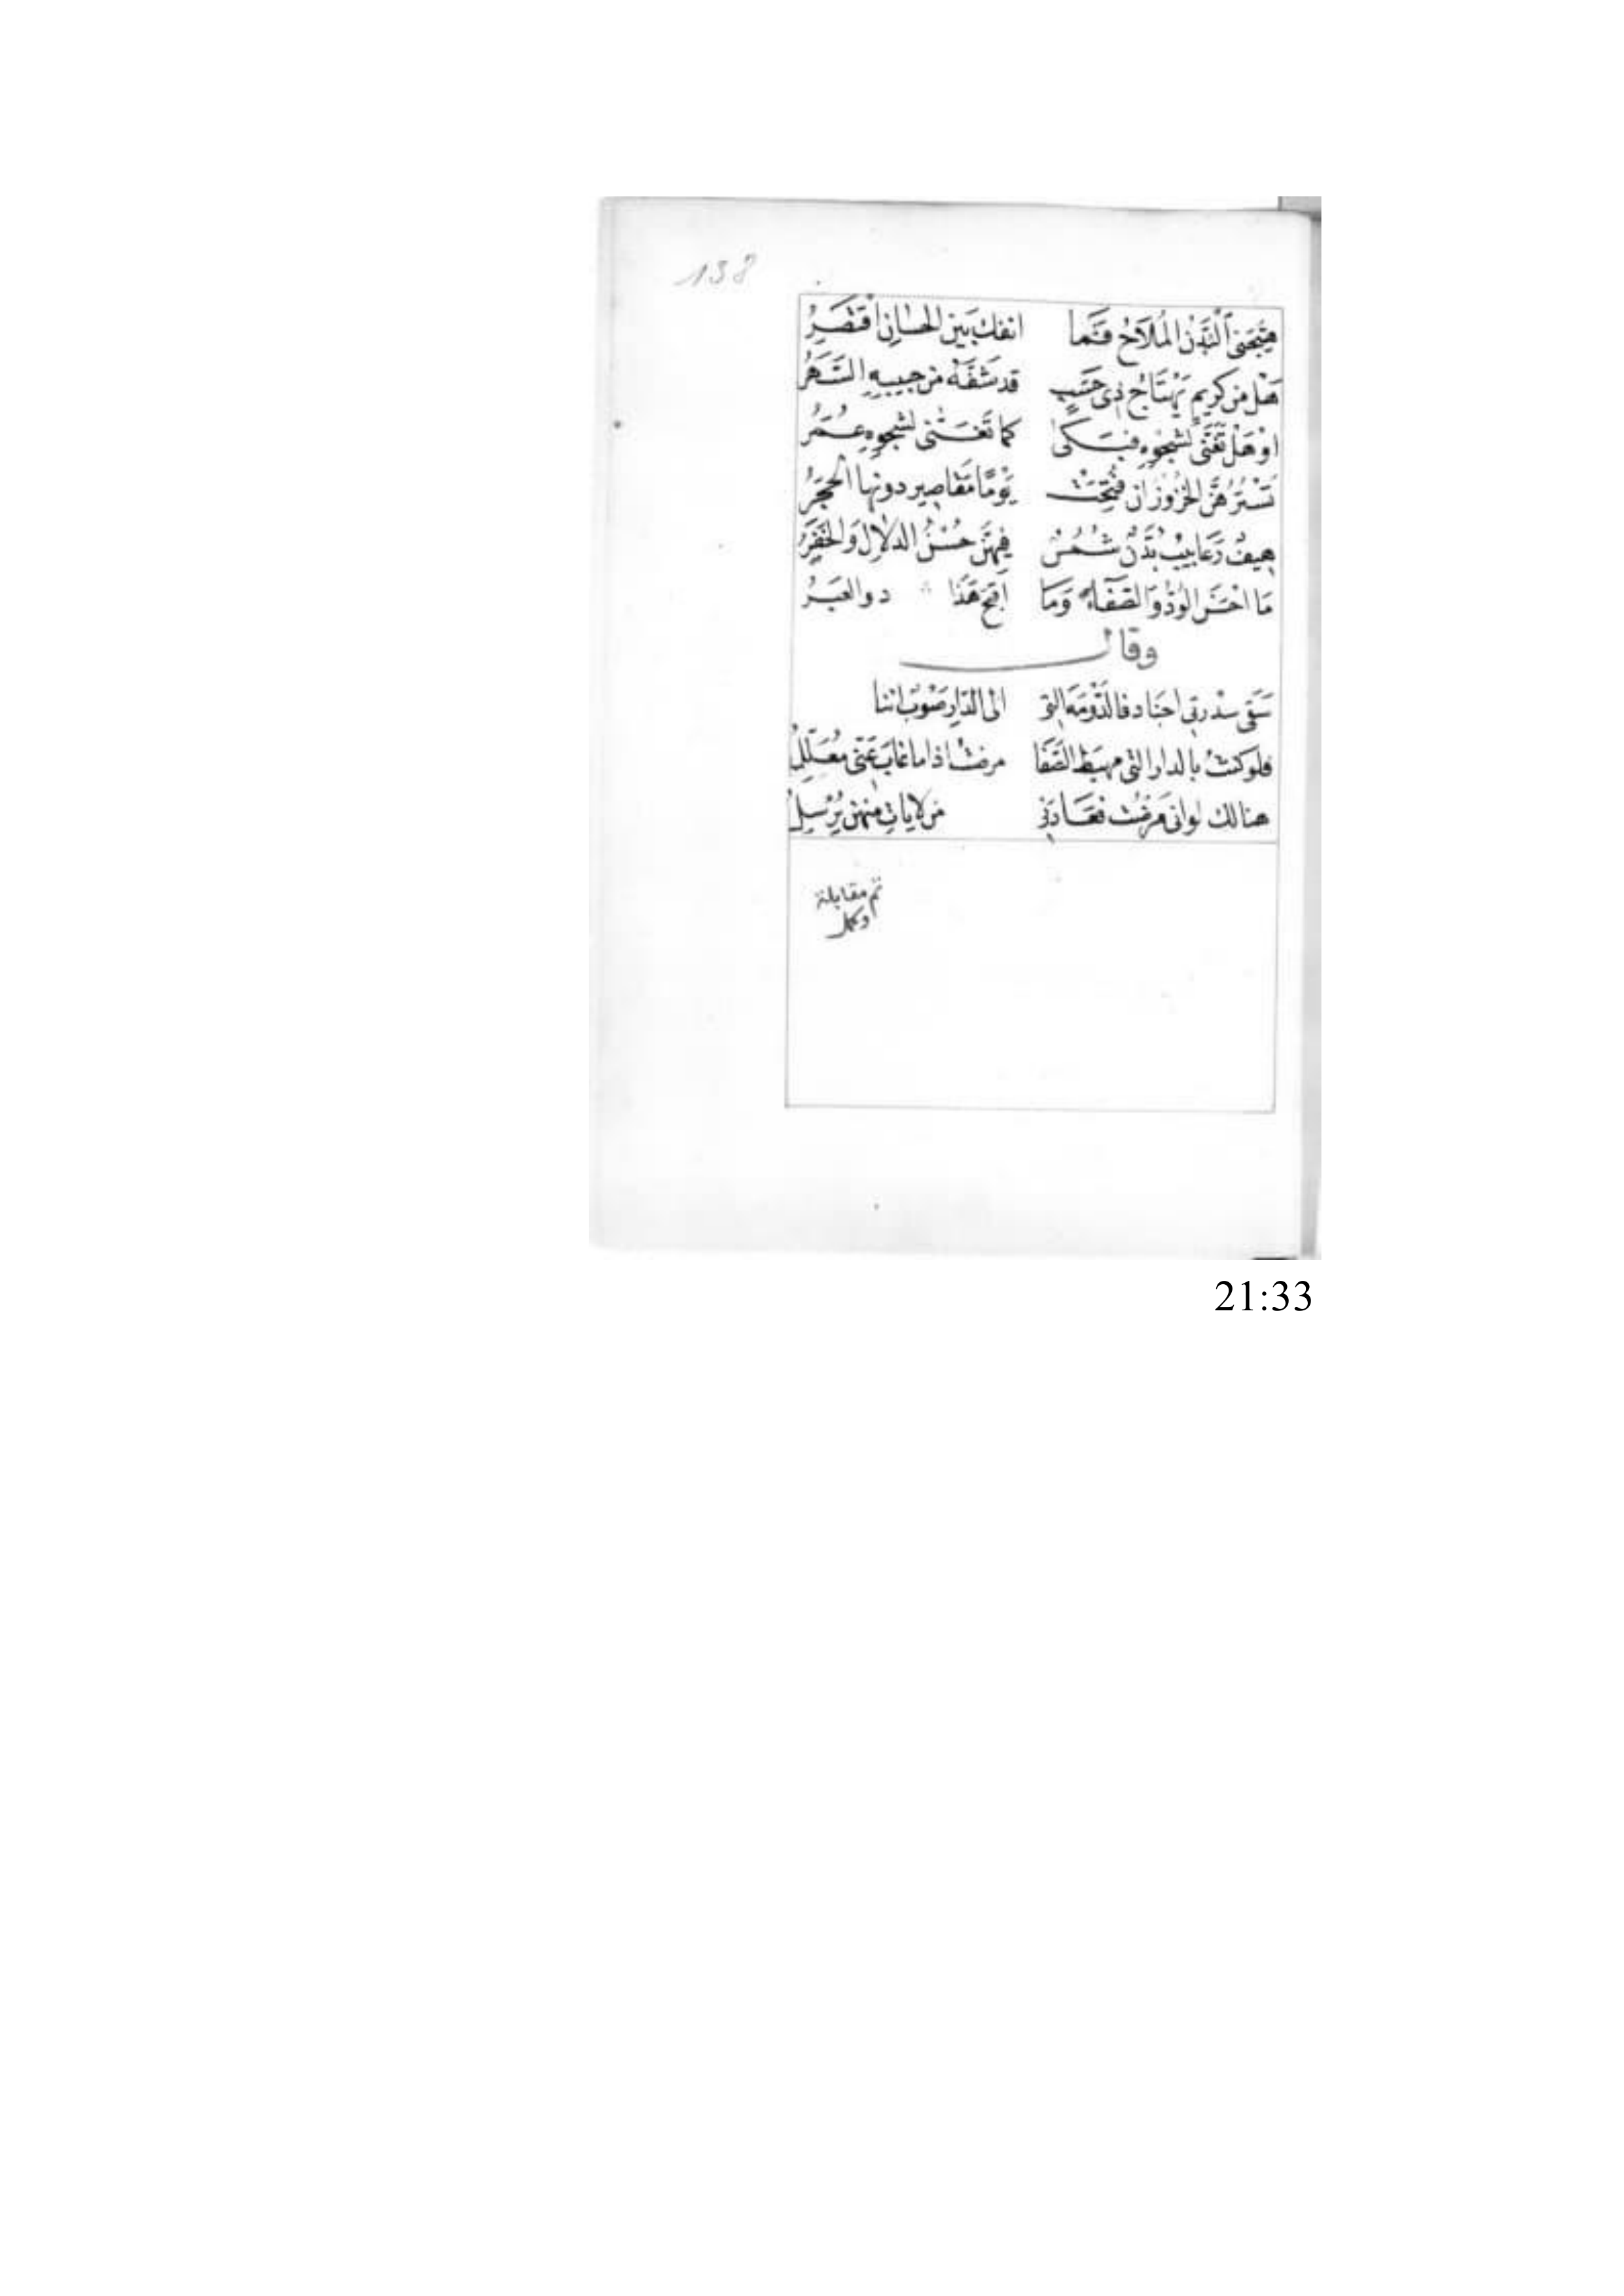 138
هيّجني البُدَّن المُلَاحُ فَمَا انفك بين الحسانِ اقتصِرُ
هَلْ من كريمٍ يَهْتَاجُ ذِي حَسَبٍ قد شَفَّهُ من حبيبهِ السَّهَرُ
او هَلْ تَغَنَّى لشجوهِ فبَكى كما تَغَنَّى لشجوهِ عُمَرُ
تَسْتُرُهُنَّ الخزوزُ ان فُتِحَتْ يَوْمًا مَقَاصِير دونها الحُجَرُ
هِيفٌ رَعَابِيبُ بُدَّنٌ شُمُسٌ فِيهنّ حُسْنُ الدلَالِ وَالخَفَرُ
مَا احْسَنَ الوُدَّ وَالصَّفَاءَ وَمَا اقبحَ هَذَا دو العبَرُ
وقال
سَقَى سدْرتَي اجيَاد فالدَّوْمَةَ التي الى الدَّارِ صَوْبُ
فلو كنتُ بالدار التي مهبَط الصَّفَا مرضتُ اذا ما غابَ عَنّي مُعَلِّلُ
هنالك لو اني مَرِضْتُ فعَادَني من منهن يُرْسِلُ
تم مقابلة
وكمل
21:33